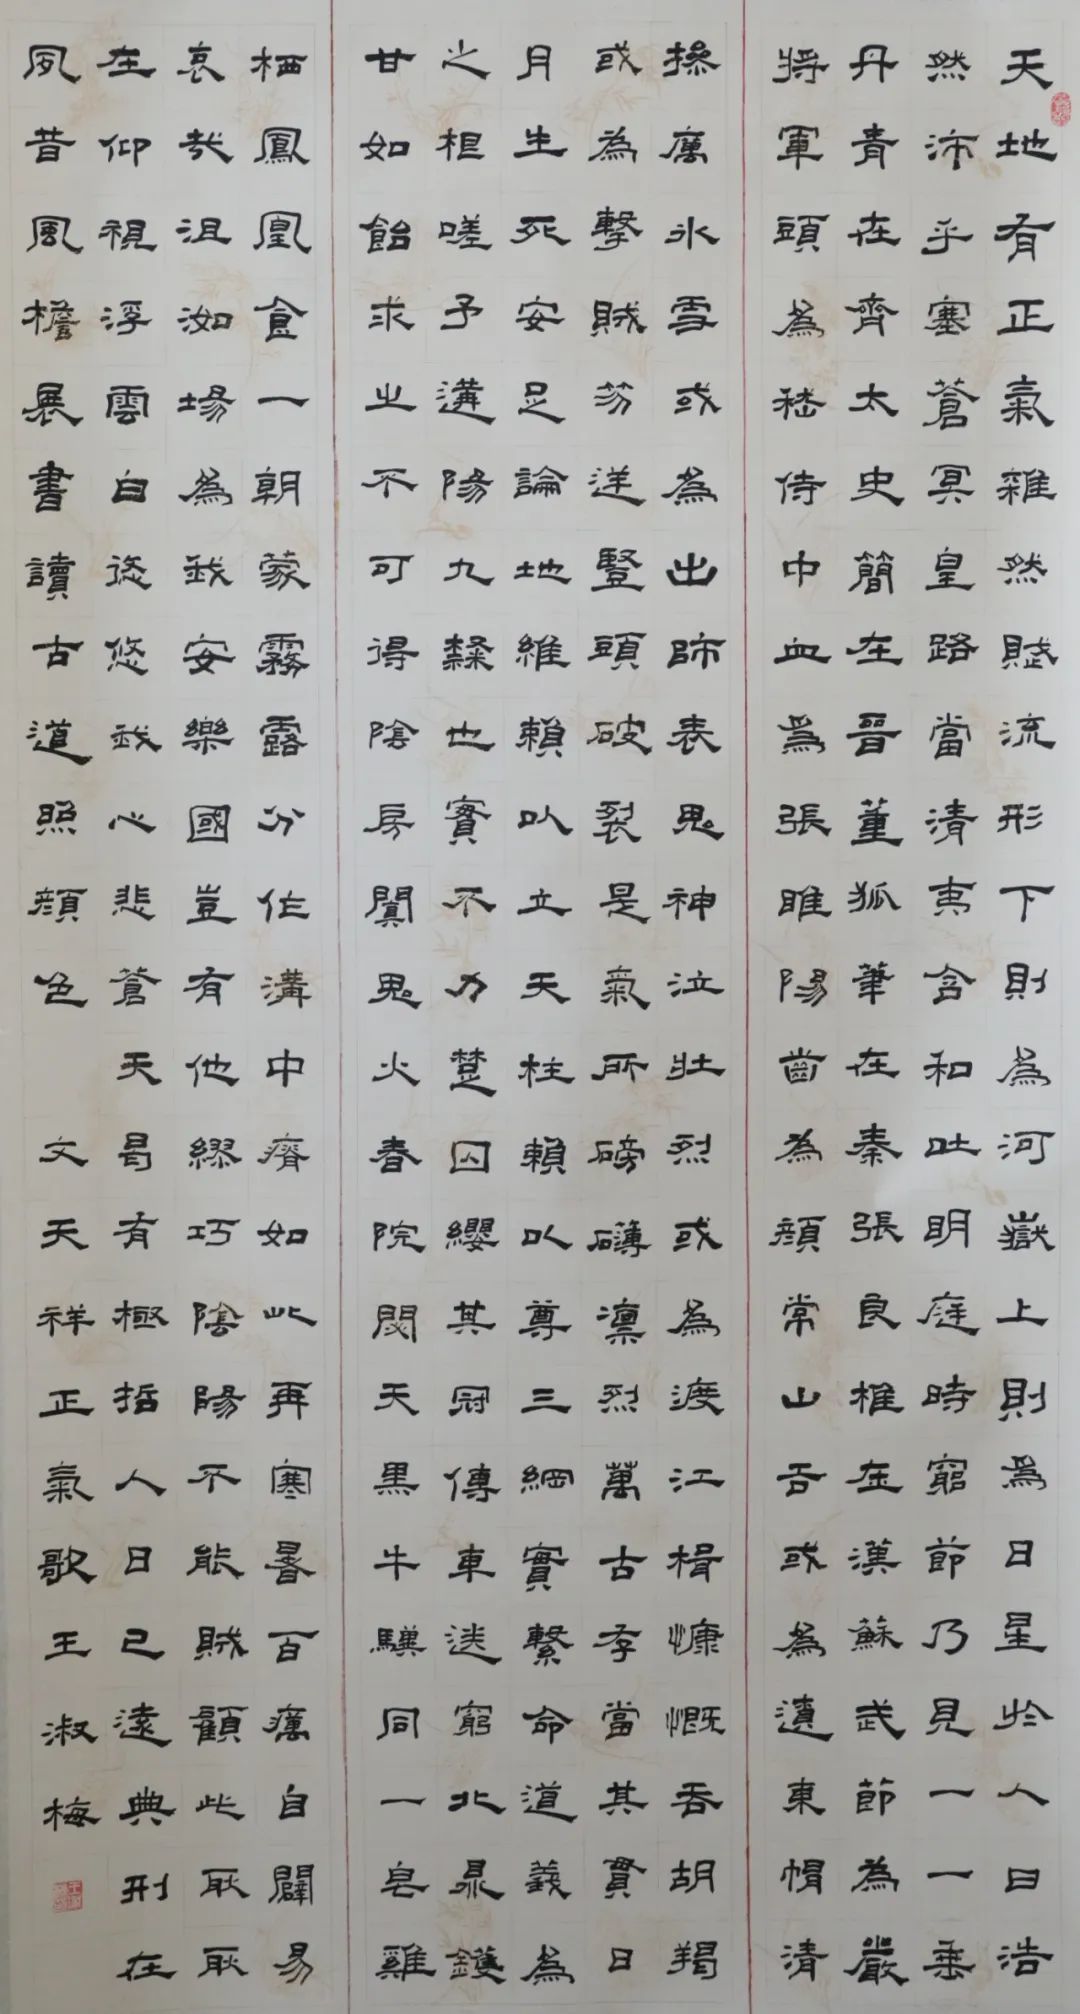 天地有正氣雜然賦流形下則為河嶽上則為日星於人曰浩
然沛乎塞蒼冥皇路當清夷含和吐明庭時窮節乃見一一垂
丹青在齊太史簡在晉董狐筆在秦張良椎在漢蘇武節為嚴
將軍頭為嵇侍中血為張睢陽齒為顏常山舌或為遼東帽清
操厲冰雪或為出師表鬼神泣壯烈或為渡江楫慷慨吞胡羯
或為擊賊笏逆豎頭破裂是氣所磅礴凜烈萬古存當其貫日
月生死安足論地維賴以立天柱賴以尊三綱實繫命道義為
之根嗟予遘陽九隸也實不力楚囚纓其冠傳車送窮北鼎鑊
甘如飴求之不可得陰房闃鬼火春院閟天黑牛驥同一皂雞
栖鳳凰食一朝蒙霧露分作溝中瘠如此再寒暑百癘自闢易
哀哉沮洳場為我安樂國豈有他繆巧陰陽不能賊顧此耿耿
在仰視浮雲白悠悠我心悲蒼天曷有極哲人日已遠典刑在
夙昔風檐展書讀古道照顏色 文天祥正氣歌王淑梅